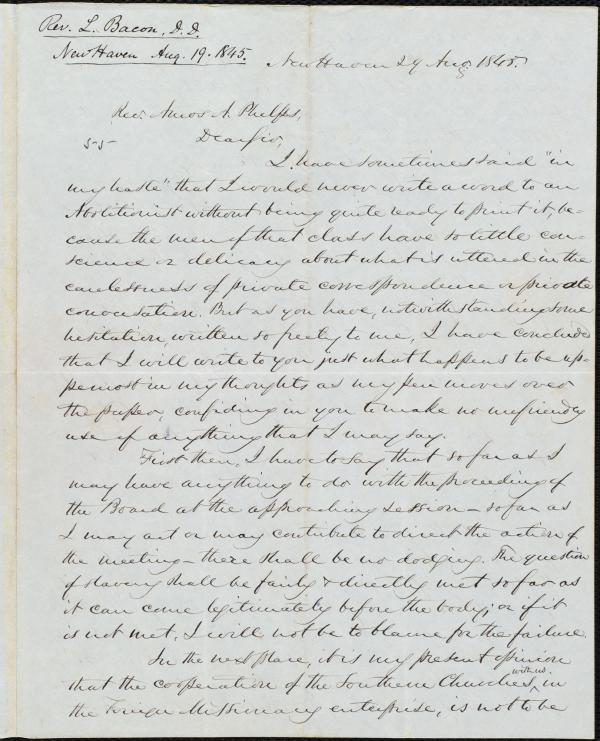 Rev. L. Bacon, D.D.
New Haven Aug. 19. 1845.
New Haven 29 Aug. 1845.
Rev. Amos A. Phelps,
Dear Sir,
I have sometimes said "in
my haste" that I would never write a word to an
Abolitionist without being quite ready to print it, be-
cause the men of that class have so little con-
science or delicacy about what is uttered in the
carelessness of private correspondence or private
conversation. But as you have, notwithstanding some
hesitation, written so freely to me, I have concluded
that I will write to you just what happens to be up-
permost in my thoughts as my pen moves over
the paper, confiding in you to make no unfriendly
use of anything that I may say.
First then, I have to say that so far as I
may have anything to do with the proceeding of
the Board at the approaching session – so far as
I may act or may contribute to direct the action of
the meeting – there shall be no dodging. The question
of slavery shall be fairly & directly met so far as
it can come legitimately before the body; or if it
is not met, I will not be to blame for the failure.
In the next place, it is my present opinion
that the cooperation of the Southern Churches, with us in
the Foreign Missionary enterprise, is not to be